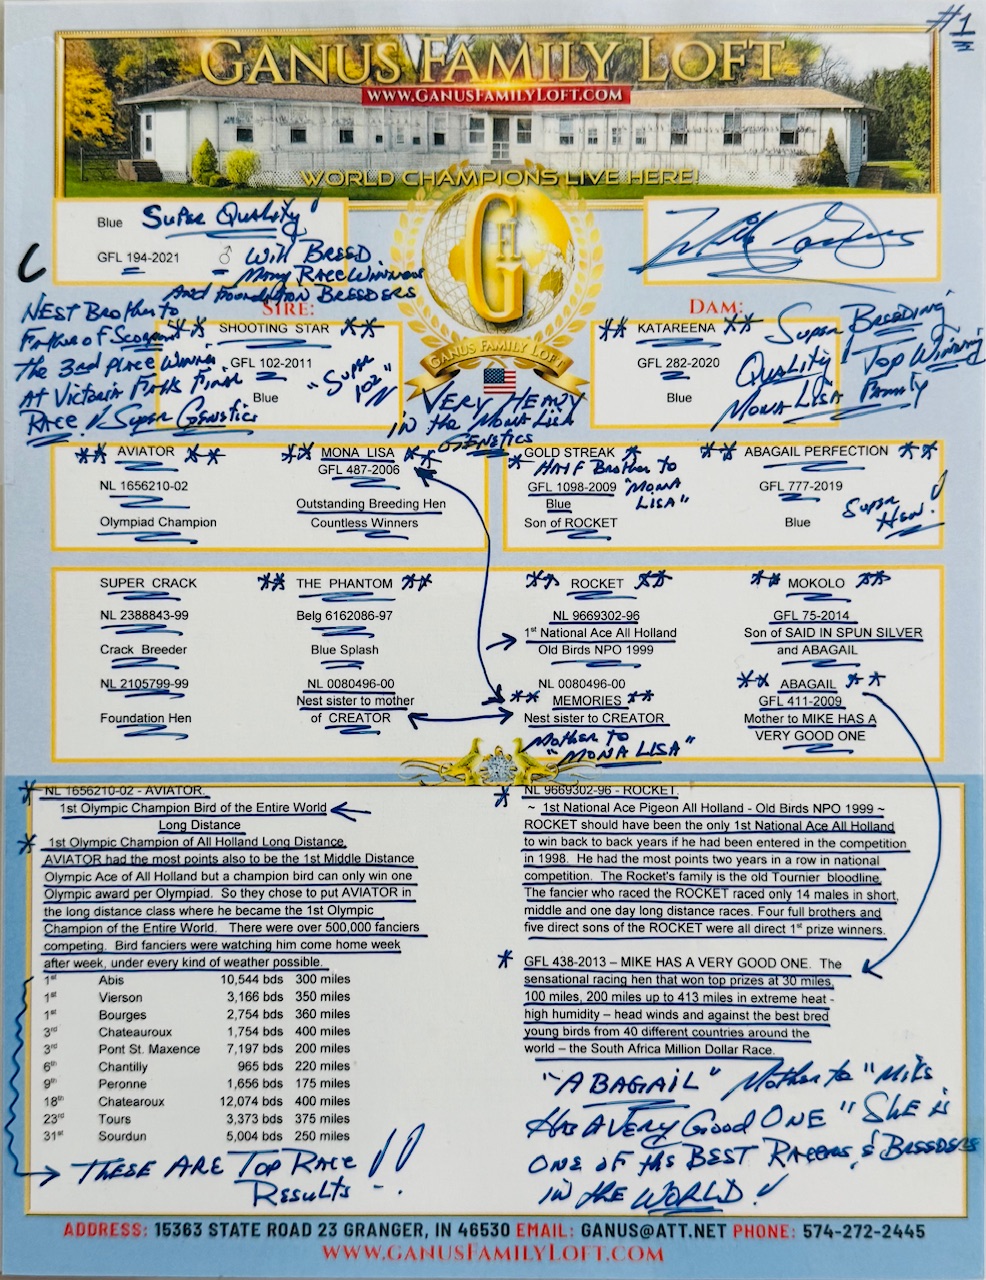 #1
GANUS FAMILY LOFT
WWW.GANUSFAMILYLOFT.COM
WORLD CHAMPIONS LIVE HERE!
Blue Super Quality!
GFL 194-2021 ♂ Will Breed
Many Race Winners
And Foundation Breeders
C
Nest Brother to
Father of Scorpion
The 3rd Place Winner
At Victoria Falls Final
Race! Super Genetics
GHL
GANUS FAMILY LOFT
Very Heavy
in the Mona Lisa
Genetics
SIRE:
** SHOOTING STAR **
GFL 102-2011
Blue
"Super 102"
DAM:
** KATAREENA **
GFL 282-2020
Blue
Super Breeding
Quality! Top Winning
Mona Lisa Family
** AVIATOR **
NL 1656210-02
Olympiad Champion
** MONA LISA **
GFL 487-2006
Outstanding Breeding Hen
Countless Winners
GOLD STREAK *
* Half Brother to
GFL 1098-2009 "Mona
Blue Lisa"
Son of ROCKET
** ABAGAIL PERFECTION **
GFL 777-2019
Blue
Super Hen!
SUPER CRACK
NL 2388843-99
Crack Breeder
NL 2105799-99
Foundation Hen
** THE PHANTOM **
Belg 6162086-97
Blue Splash
NL 0080496-00
Nest sister to mother
of CREATOR
** ROCKET **
NL 9669302-96
1st National Ace All Holland
Old Birds NPO 1999
NL 0080496-00
** MEMORIES **
Nest sister to CREATOR
Mother to
"Mona Lisa"
** MOKOLO **
GFL 75-2014
Son of SAID IN SPUN SILVER
and ABAGAIL
** ABAGAIL **
GFL 411-2009
Mother to MIKE HAS A
VERY GOOD ONE
* NL 1656210-02 - AVIATOR.
1st Olympic Champion Bird of the Entire World
Long Distance
* 1st Olympic Champion of All Holland Long Distance.
AVIATOR had the most points also to be the 1st Middle Distance
Olympic Ace of All Holland but a champion bird can only win one
Olympic award per Olympiad.  So they chose to put AVIATOR in
the long distance class where he became the 1st Olympic
Champion of the Entire World.  There were over 500,000 fanciers
competing.  Bird fanciers were watching him come home week
after week, under every kind of weather possible.
1st Abis 10,544 bds 300 miles
1st Vierson 3,166 bds 350 miles
1st Bourges 2,754 bds 360 miles
3rd Chateauroux 1,754 bds 400 miles
3rd Pont St. Maxence 7,197 bds 200 miles
6th Chantilly 965 bds 220 miles
9th Peronne 1,656 bds 175 miles
18th Chatearoux 12,074 bds 400 miles
23rd Tours 3,373 bds 375 miles
31st Sourdun 5,004 bds 250 miles
These Are Top Race
Results !!
* NL 9669302-96 - ROCKET.
~ 1st National Ace Pigeon All Holland - Old Birds NPO 1999 ~
ROCKET should have been the only 1st National Ace All Holland
to win back to back years if he had been entered in the competition
in 1998.  He had the most points two years in a row in national
competition.  The Rocket's family is the old Tournier  bloodline.
The fancier who raced the ROCKET raced only 14 males in short,
middle and one day long distance races. Four full brothers and
five direct sons of the ROCKET were all direct 1st prize winners.
* GFL 438-2013 – MIKE HAS A VERY GOOD ONE.  The
sensational racing hen that won top prizes at 30 miles,
100 miles, 200 miles up to 413 miles in extreme heat -
high humidity – head winds and against the best bred
young birds from 40 different countries around the
world – the South Africa Million Dollar Race.
"Abagail" Mother to "Mike
Has A Very Good One" She is
One of the Best Racers & Breeders
in the World!
ADDRESS: 15363 STATE ROAD 23 GRANGER, IN 46530 EMAIL: GANUS@ATT.NET PHONE: 574-272-2445
WWW.GANUSFAMILYLOFT.COM